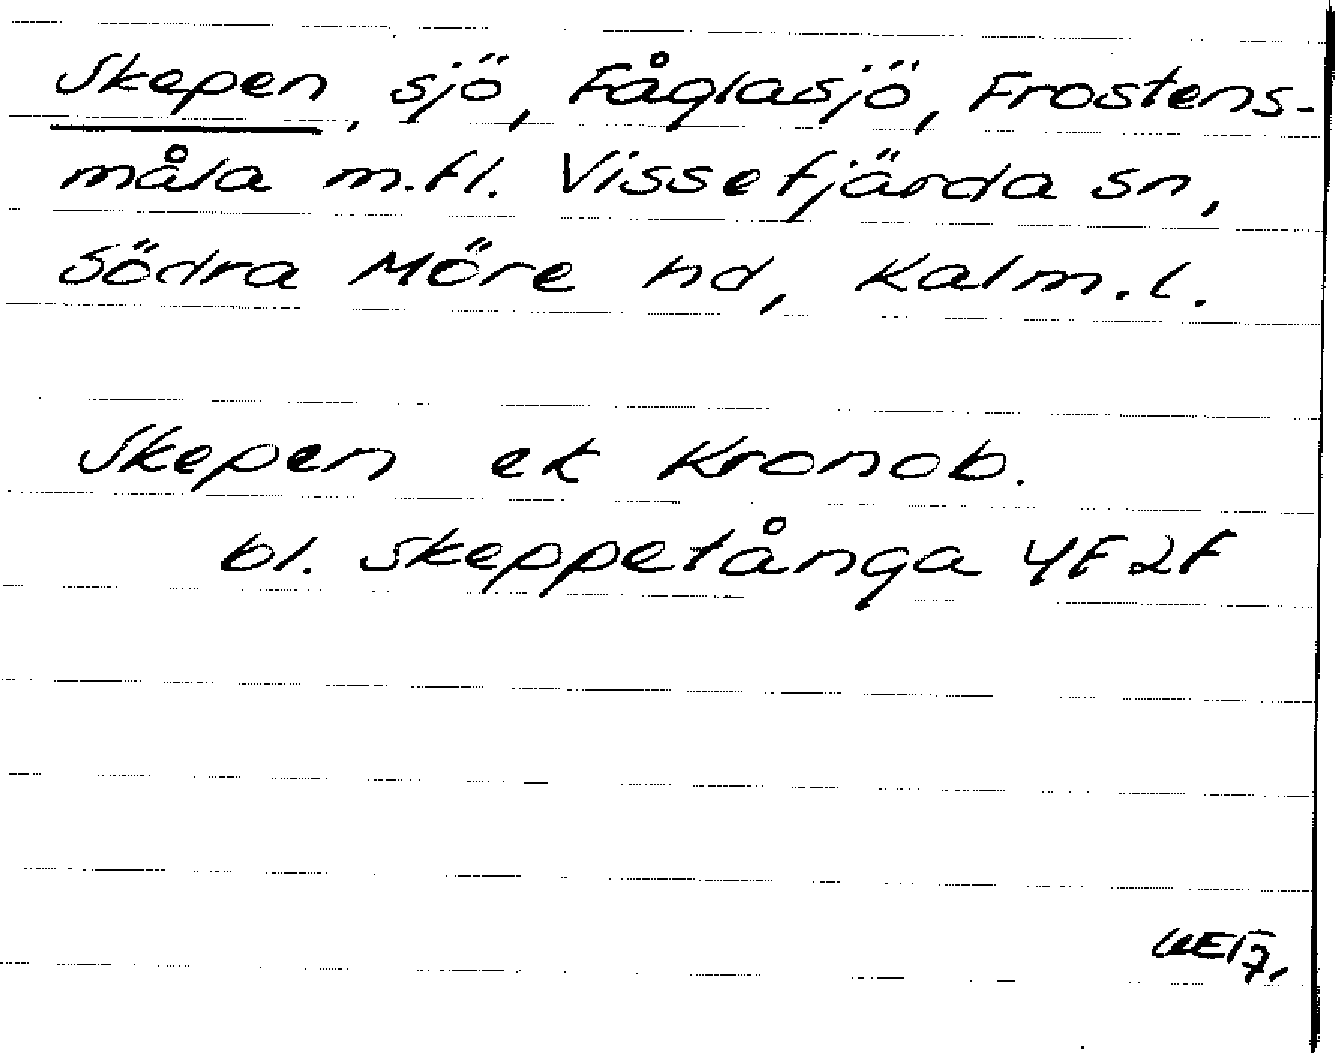 Skepen, sjö, Fåglasjö, Frostens-
måla m.fl. Vissefjärda sn,
Södra Möre hd, Kalm.l.
Skepen ek Kronob.
bl. Skeppetånga 4F2f